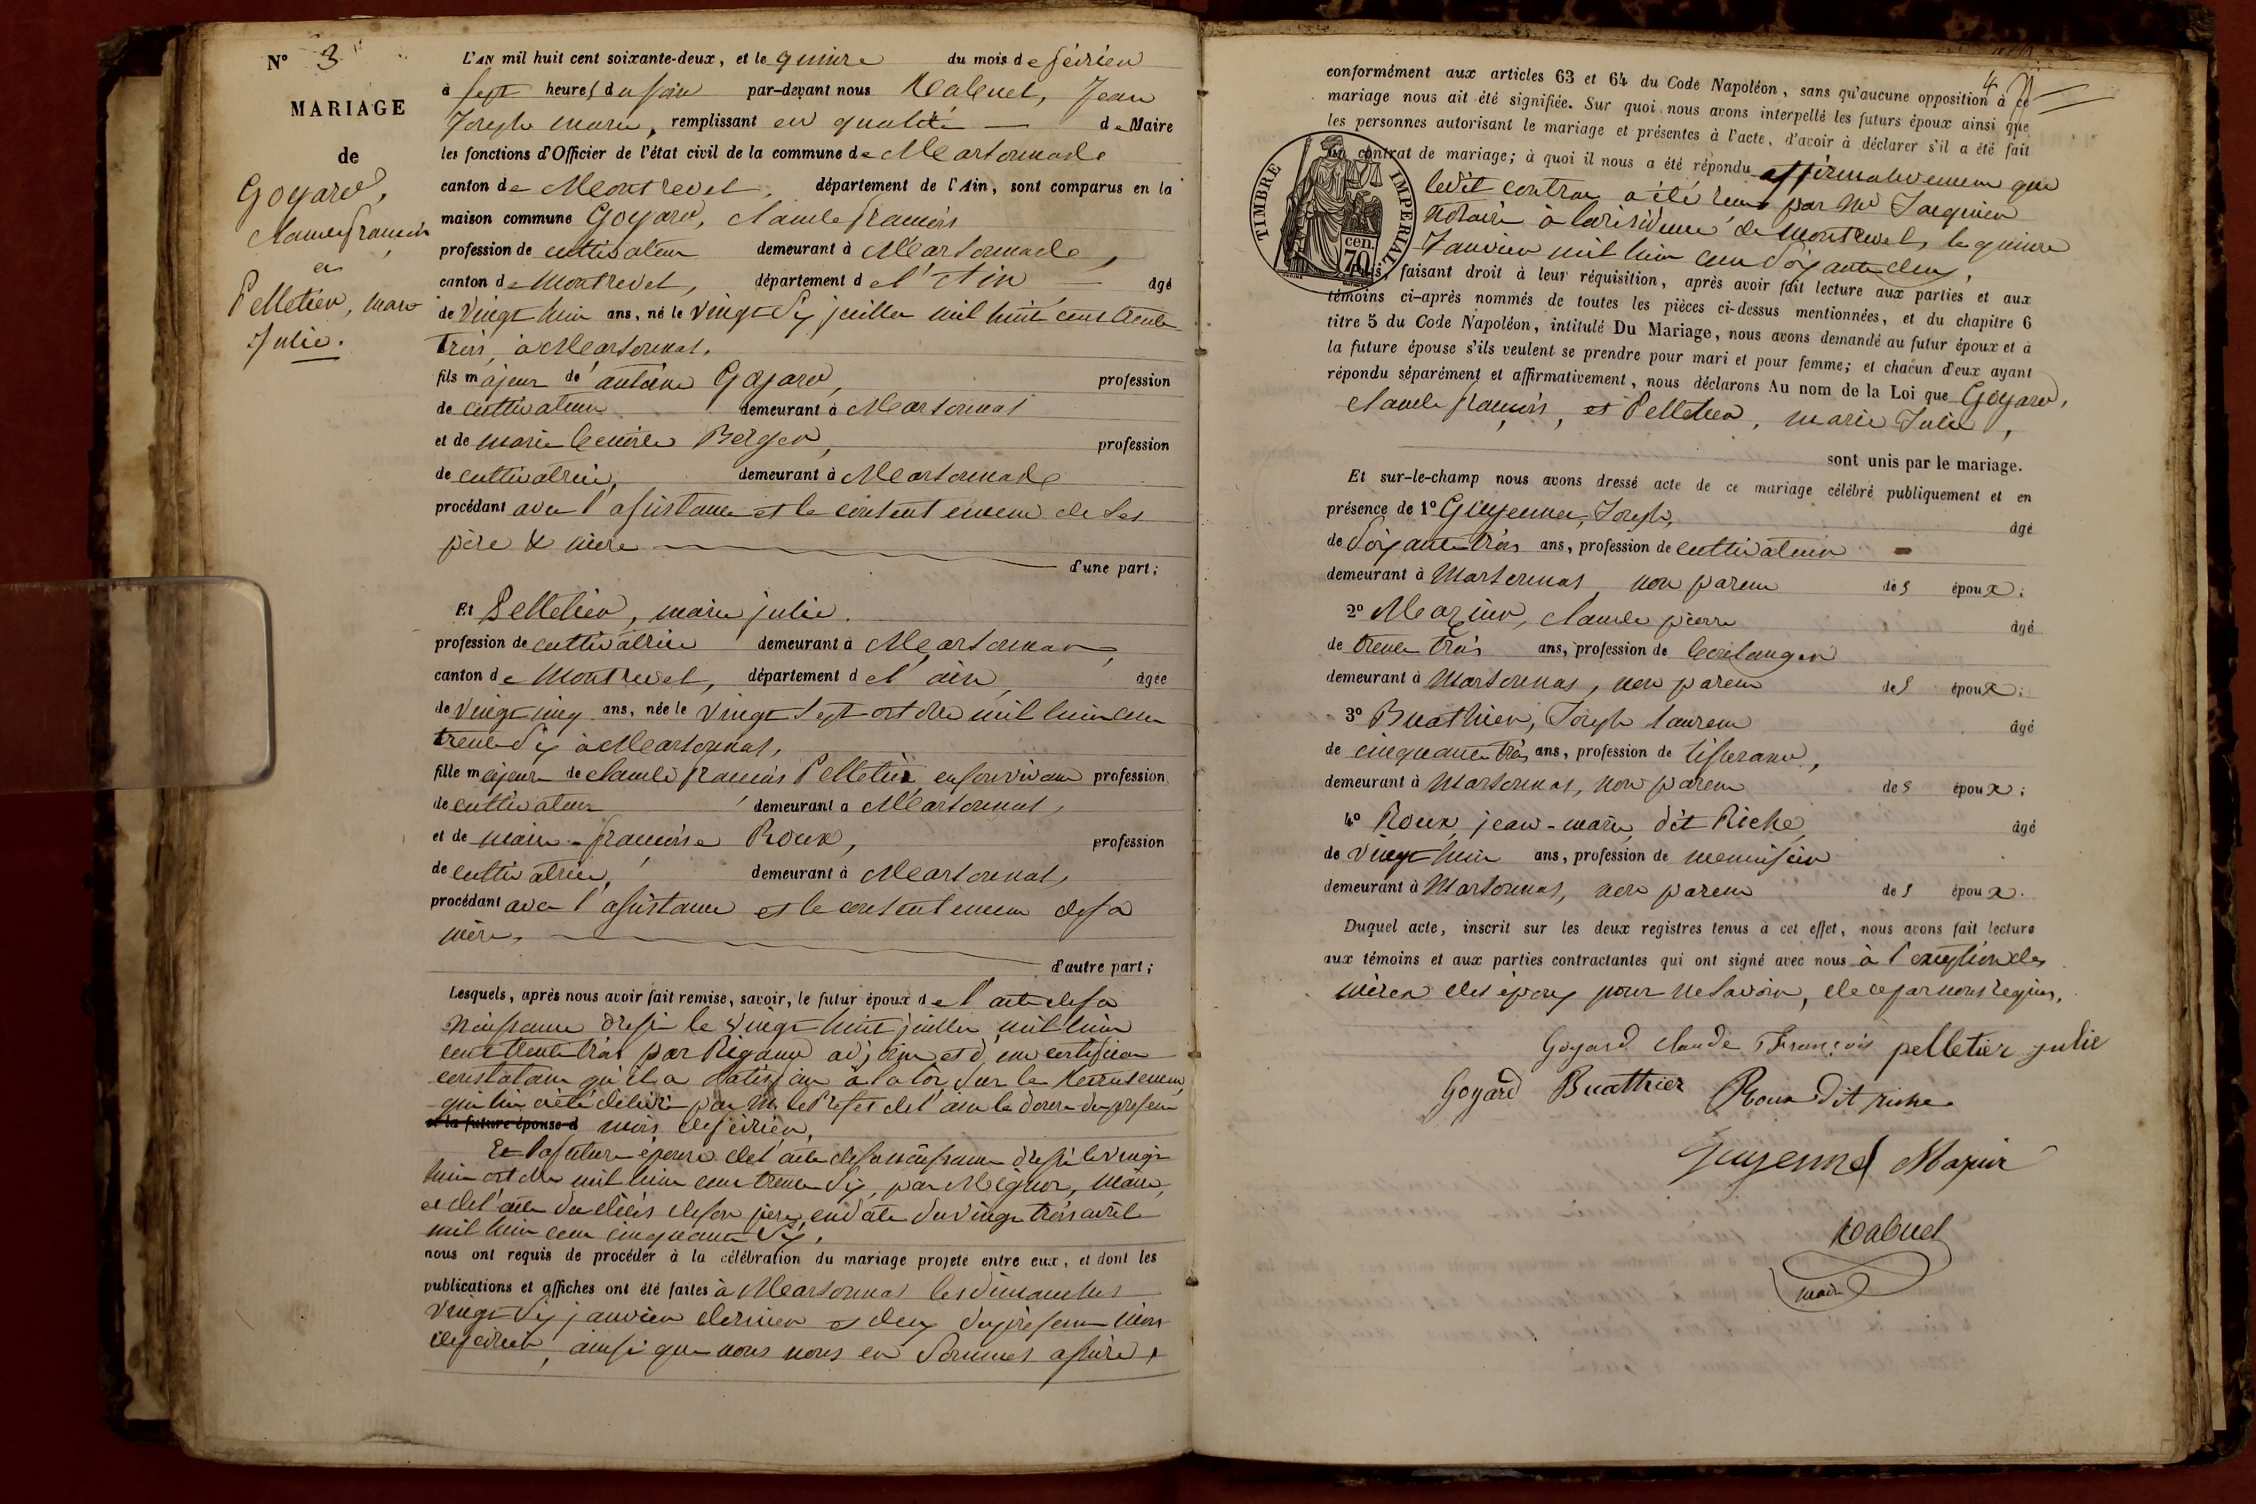 N° 3
MARIAGE
de
Goyard,
Claude françois
et
Pelletier, marie
Julie.
L'AN mil huit cent soixante-deux, et le quinze du mois de février
à sept heures du soir par-devant nous Jean
Joseph marie, remplissant en qualité de Maire
les fonctions d'Officier de l'état civil de la commune de Marsonnas
canton de Montrevel, département de l'Ain, sont comparus en la
maison commune Goyard, claude françois
profession de cultivateur demeurant à Marsonnas,
canton de Montrevel, département de l'Ain âgé
de vingt huit ans, né le vingt six juillet mil huit cent trente
trois, à Marsonnas.
fils majeur de antoine Goyard, profession
de cultivateur demeurant à Marsonnas
et de marie Berger, profession
de cultivatrice, demeurant à Marsonnas
procédant avec l'assistance et le consentement de ses
père & mère
d'une part;
Et Pelletier, marie julie.
profession de cultivatrice demeurant à Marsonnas,
canton de Montrevel, département de l'ain, âgée
de vingt cinq ans, née le vingt sept octobre mil huit cent
trente six à Marsonnas,
fille majeure de claude françois Pelletier en son vivant profession
de cultivateur demeurant à Marsonnas,
et de marie-françoise Roux, profession
de cultivatrice, demeurant à Marsonnas,
procédant avec l'assistance et le consentement de sa
mère,
d'autre part;
Lesquels, après nous avoir fait remise, savoir, le futur époux de l'acte de sa
naissance dressé le vingt huit juillet mil huit
cent trente trois par Rigaud adjoint et d'un certificat
constatant qu'il a satisfait à la loi sur le recrutement,
qui lui a été délivré par M. le Préfet de l'ain le douze du présent
et la future épouse d mois de février,
Et la future épouse de l'acte de sa naissance dressé le vingt
huit octobre mil huit cent trente six, par Mignot, maire,
et de l'acte du décès de son père, en date du vingt trois avril
mil huit cent cinquante six,
nous ont requis de procéder à la célébration du mariage projeté entre eux, et dont les
publications et affiches ont été faites à Marsonnas les dimanches
vingt six janvier dernier et deux du présent mois
de février, ainsi que nous nous en sommes assuré,
conformément aux articles 63 et 64 du Code Napoléon, sans qu'aucune opposition à ce
mariage nous ait été signifiée. Sur quoi nous avons interpellé les futurs époux ainsi que
les personnes autorisant le mariage et présentes à l'acte, d'avoir à déclarer s'il a été fait
un contrat de mariage; à quoi il nous a été répondu affirmativement que
ledit contrat a été reçu par Me Jacquier
notaire à la résidence de Montrevel, le quinze
Janvier mil huit cent soixante deux,
TIMBRE IMPERIAL
70 cen.
Puis, faisant droit à leur réquisition, après avoir fait lecture aux parties et aux
témoins ci-après nommés de toutes les pièces ci-dessus mentionnées, et du chapitre 6
titre 5 du Code Napoléon, intitulé Du Mariage, nous avons demandé au futur époux et à
la future épouse s'ils veulent se prendre pour mari et pour femme; et chacun d'eux ayant
répondu séparément et affirmativement, nous déclarons Au nom de la Loi que Goyard,
claude françois, et Pelletier, marie Julie,
sont unis par le mariage.
Et sur-le-champ nous avons dressé acte de ce mariage célébré publiquement et en
présence de 1° Guyennet, Joseph, âgé
de soixante trois ans, profession de cultivateur
demeurant à Marsonnas non parent des époux;
2° Mazuir, claude pierre âgé
de trente trois ans, profession de boulanger
demeurant à Marsonnas, non parent des époux;
3° Buathier, Joseph laurent âgé
de cinquante trois ans, profession de tisserand,
demeurant à Marsonnas, non parent des époux;
4° Roux, jean-marie, dit Riche, âgé
de vingt huit ans, profession de menuisier
demeurant à Marsonnas, non parent des époux.
Duquel acte, inscrit sur les deux registres tenus à cet effet, nous avons fait lecture
aux témoins et aux parties contractantes qui ont signé avec nous à l'exception des
mères des époux pour ne savoir, de ce par nous requises.
Goyard claude François pelletier julie
Goyard Buathier Roux dit riche
Guyennet Mazuir
maire